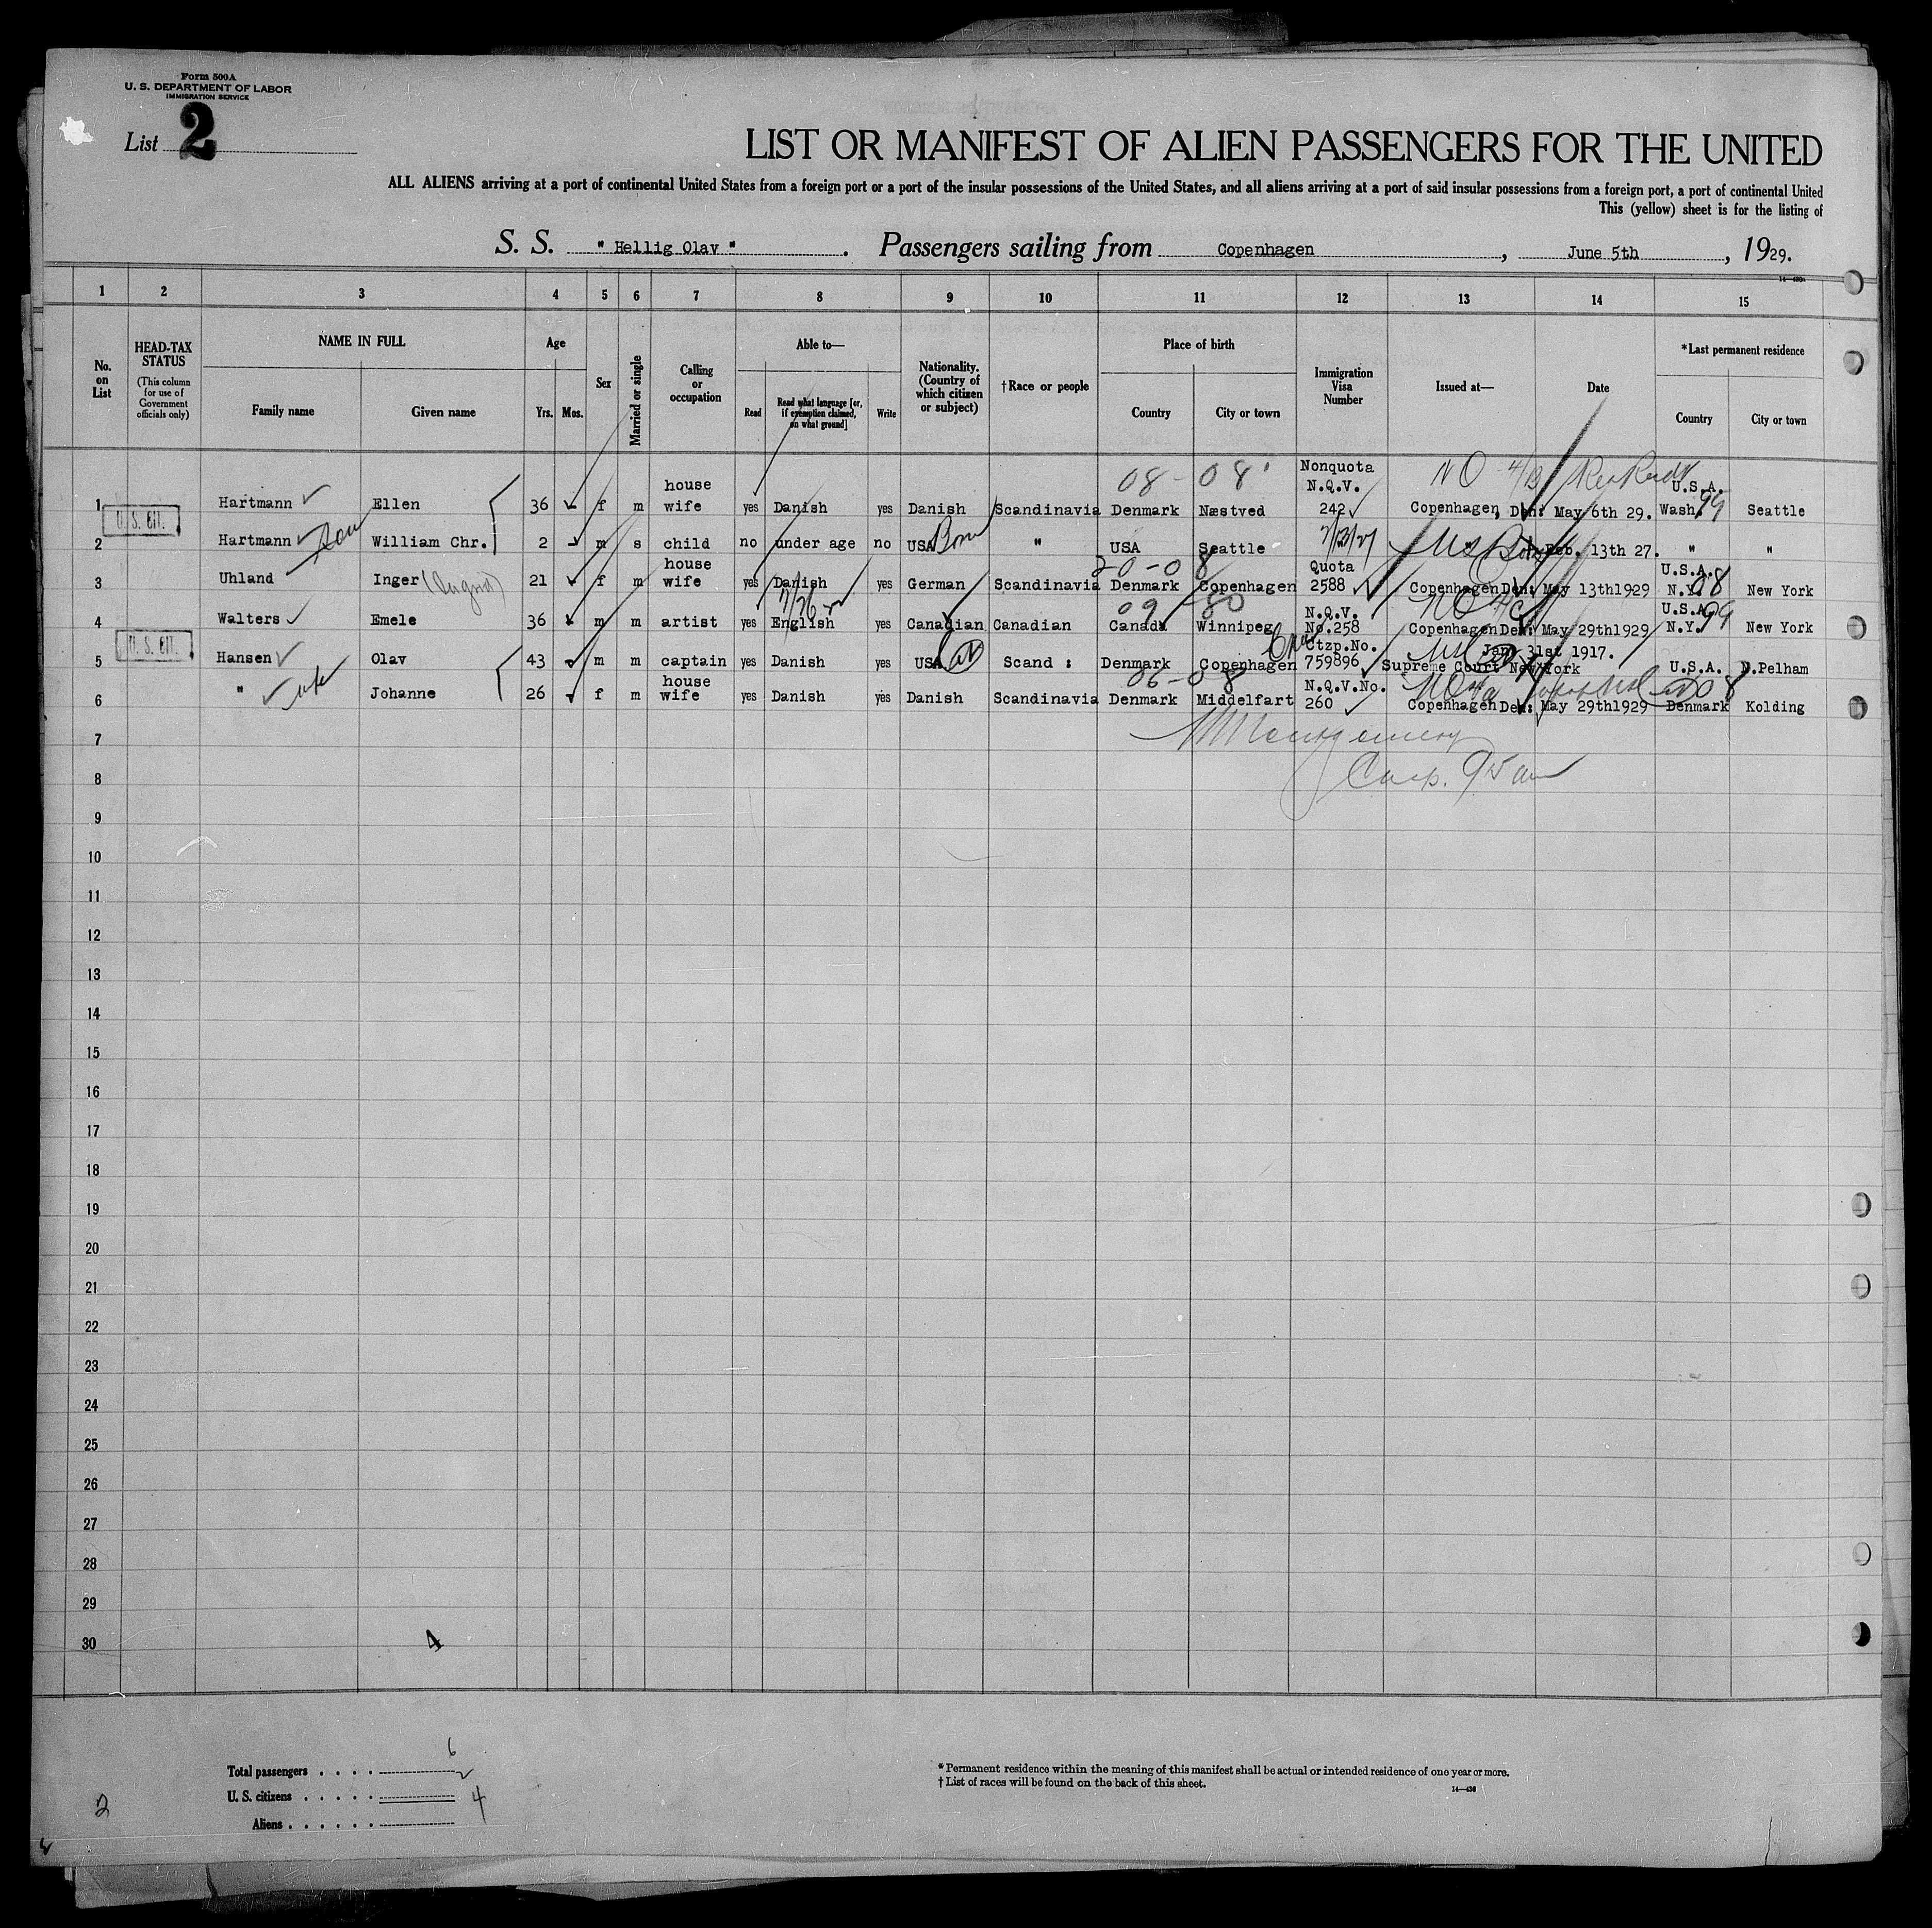 Form 500A
U. S. DEPARTMENT OF LABOR
IMMIGRATION SERVICE
List 2
LIST OR MANIFEST OF ALIEN PASSENGERS FOR THE UNITED
ALL ALIENS arriving at a port of continental United States from a foreign port or a port of the insular possessions of the United States, and all aliens arriving at a port of said insular possessions from a foreign port, a port of continental United
This (yellow) sheet is for the listing of
S. S. "Hellig Olav". Passengers sailing from Copenhagen, June 5th, 1929.
1 2 3 4 5 6 7 8 9 10 11 12 13 14 15
No. on List
HEAD-TAX STATUS (This column for use of Government officials only)
NAME IN FULL
Family name Given name
Age
Yrs. Mos.
Sex
Married or single
Calling or occupation
Able to—
Read Read what language [or, if exemption claimed, on what ground] Write
Nationality. (Country of which citizen or subject)
†Race or people
Place of birth
Country City or town
Immigration Visa Number
Issued at—
Date
*Last permanent residence
Country City or town
08-08 Nonquota NO
house N.Q.V. U.S.A.
1 Hartmann Ellen 36 f m wife yes Danish yes Danish Scandinavia Denmark Næstved 242 Copenhagen, Den: May 6th 29. Wash. 99 Seattle
U. S. CIT.
2 Hartmann Son William Chr. 2 m s child no under age no USA Born " USA Seattle " Feb. 13th 27. " "
house 20-08 Quota U.S.A.
3 Uhland Inger 21 f m wife yes Danish yes German Scandinavia Denmark Copenhagen 2588 Copenhagen Den: May 13th1929 N.Y. 08 New York
09-80 N.Q.V. U.S.A. 99
4 Walters Emele 36 m m artist yes English yes Canadian Canadian Canada Winnipeg No.258 Copenhagen Den: May 29th1929 N.Y. New York
U. S. CIT.
Ctzp.No. Jan. 31st 1917.
5 Hansen Olav 43 m m captain yes Danish yes USA Scand : Denmark Copenhagen 759896 Supreme Court New York U.S.A. Pelham
house 06-08 N.Q.V.No. 08
6 " wife Johanne 26 f m wife yes Danish yes Danish Scandinavia Denmark Middelfart 260 Copenhagen Den: May 29th1929 Denmark Kolding
7 Montgomery
8
9
10
11
12
13
14
15
16
17
18
19
20
21
22
23
24
25
26
27
28
29
30
4
Total passengers . . . . 6
U. S. citizens . . . . . 2
Aliens . . . . . . 4
2
* Permanent residence within the meaning of this manifest shall be actual or intended residence of one year or more.
† List of races will be found on the back of this sheet.